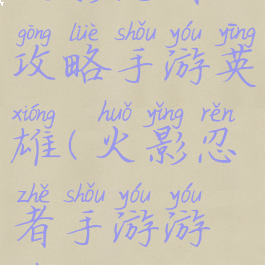 gōng lüè shǒu yóu yīng
攻略手游英
xióng huǒ yǐng rěn
雄(火影忍
zhě shǒu yóu yóu
者手游游